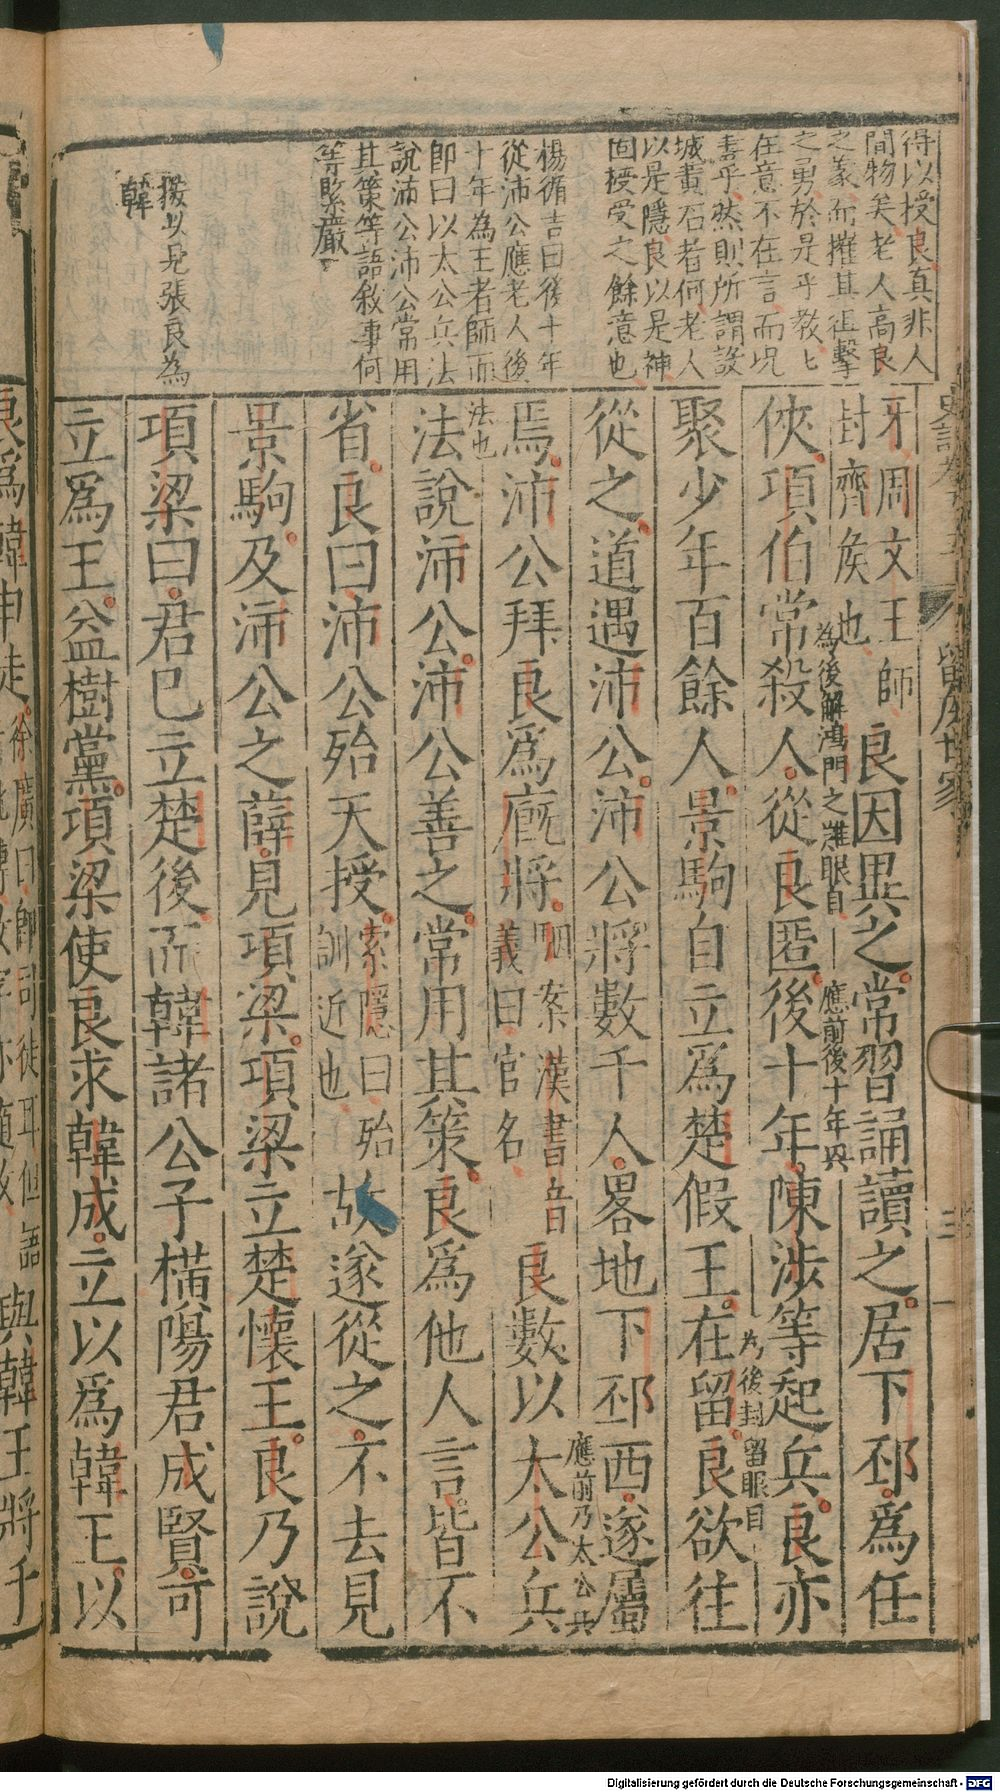 得以授良真非人
間物矣老人高良
之義而摧其徂擊
之勇於是乎教匕
在意不在言而况
書乎然則所謂設
城黃石者何老人
以是隱良以是神
固授受之餘意也
楊循吉曰後十年
從沛公應老人後
十年為王者師而
即曰以太公兵法
說沛公沛公常用
其策等語敘事何
等緊嚴
接以見張良為
韓
牙周文王師
封齊矦也
良因異之常習誦讀之居下邳為任
為後解鴻門之難眼目
應前後十年興
俠項伯常殺人從良匿後十年陳涉等起兵良亦
聚少年百餘人景駒自立爲楚假王在留良欲往
為後封留眼目
從之道遇沛公沛公將數千人畧地下邳西遂屬
焉沛公拜良爲廐將
駰案漢書音
義曰官名
良數以太公兵
應前乃太公兵
法也
法說沛公沛公善之常用其策良爲他人言皆不
省良曰沛公殆天授
索隱曰殆
訓近也
故遂從之不去見
景駒及沛公之薛見項梁項梁立楚懷王良乃說
項梁曰君已立楚後而韓諸公子橫陽君成賢可
立爲王益樹黨項梁使良求韓成立以爲韓王以
良爲韓申徒
徐廣曰即司徒耳但語
與韓王將千
史記卷五十五
留侯世家
三
Digitalisierung gefördert durch die Deutsche Forschungsgemeinschaft - DFG